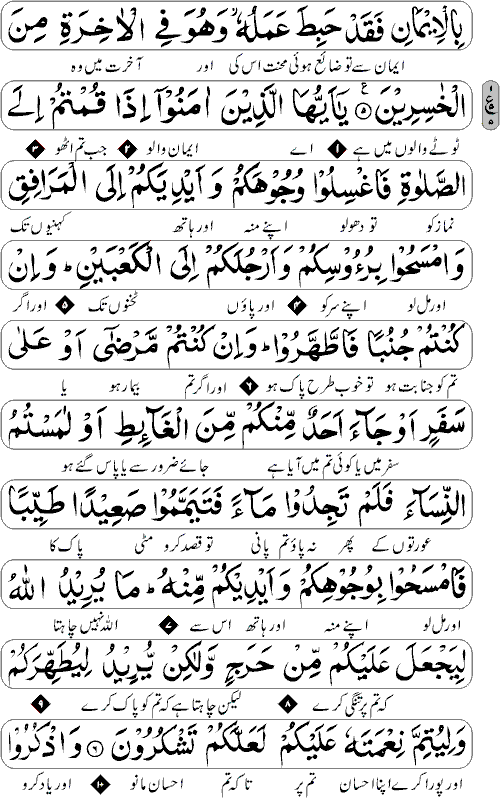 بِالْاِيْمَانِ فَقَدْ حَبِطَ عَمَلُهٗ وَهُوَ فِي الْاٰخِرَةِ مِنَ
ایمان سے تو ضائع ہوئی محنت اس کی اور آخرت میں وہ
الْخٰسِرِيْنَ ۵ يٰۤاَيُّهَا الَّذِيْنَ اٰمَنُوْۤا اِذَا قُمْتُمْ اِلَى
ٹوٹے والوں میں ہے ۱ اے ایمان والو ۲ جب تم اٹھو ۳
الصَّلٰوةِ فَاغْسِلُوْا وُجُوْهَكُمْ وَاَيْدِيَكُمْ اِلَى الْمَرَافِقِ
نماز کو تو دھو لو اپنے منہ اور ہاتھ کہنیوں تک
وَامْسَحُوْا بِرُءُوْسِكُمْ وَاَرْجُلَكُمْ اِلَى الْكَعْبَيْنِ ؕ وَاِنْ
اور مل لو اپنے سر کو ۴ اور پاؤں ٹخنوں تک ۵ اور اگر
كُنْتُمْ جُنُبًا فَاطَّهَّرُوْا ؕ وَاِنْ كُنْتُمْ مَّرْضٰۤى اَوْ عَلٰى
تم کو جنابت ہو تو خوب طرح پاک ہو ۶ اور اگر تم بیمار ہو یا
سَفَرٍ اَوْ جَآءَ اَحَدٌ مِّنْكُمْ مِّنَ الْغَآئِطِ اَوْ لٰمَسْتُمُ
سفر میں یا کوئی تم میں آیا ہے جائے ضرور سے یا پاس گئے ہو
النِّسَآءَ فَلَمْ تَجِدُوْا مَآءً فَتَيَمَّمُوْا صَعِيْدًا طَيِّبًا
عورتوں کے پھر نہ پاؤ تم پانی تو قصد کرو مٹی پاک کا
فَامْسَحُوْا بِوُجُوْهِكُمْ وَاَيْدِيْكُمْ مِّنْهُ ؕ مَا يُرِيْدُ اللّٰهُ
اور مل لو اپنے منہ اور ہاتھ اس سے ۷ اللہ نہیں چاہتا
لِيَجْعَلَ عَلَيْكُمْ مِّنْ حَرَجٍ وَّلٰكِنْ يُّرِيْدُ لِيُطَهِّرَكُمْ
کہ تم پر تنگی کرے ۸ لیکن چاہتا ہے کہ تم کو پاک کرے ۹
وَلِيُتِمَّ نِعْمَتَهٗ عَلَيْكُمْ لَعَلَّكُمْ تَشْكُرُوْنَ ۶ وَاذْكُرُوْا
اور پورا کرے اپنا احسان تم پر تاکہ تم احسان مانو ۱۰ اور یاد کرو